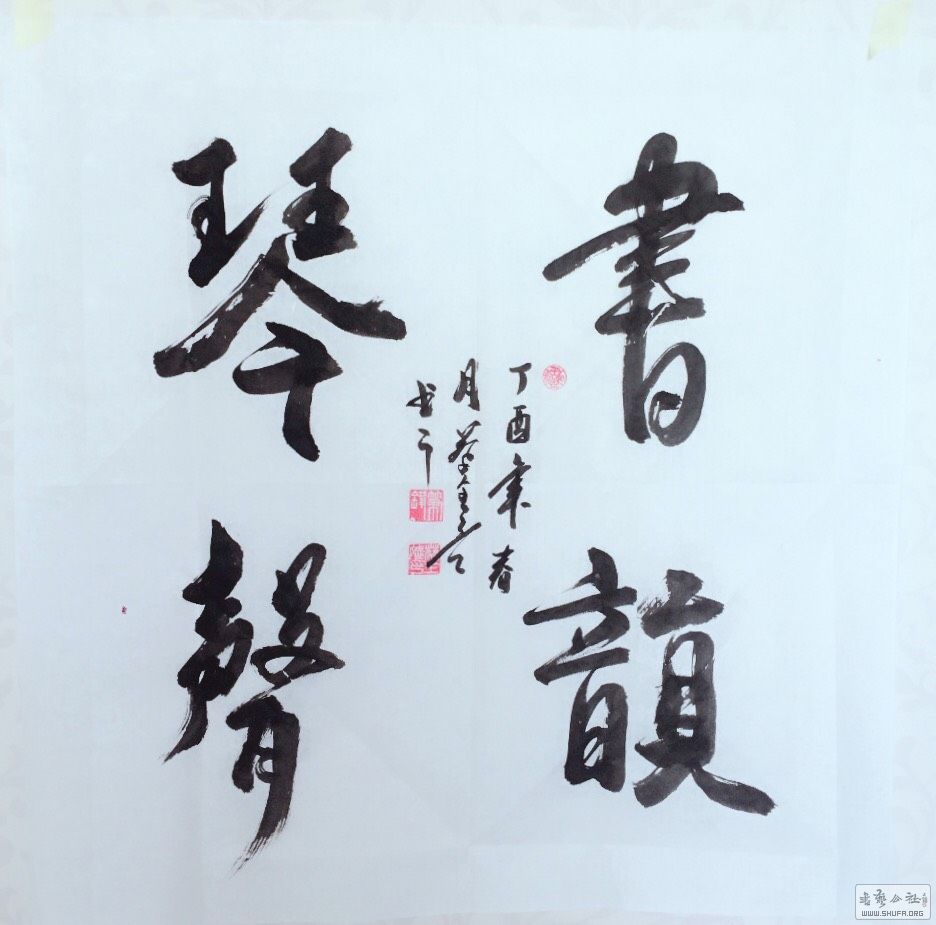 書韻
琴聲
丁酉年春
月蔡
书于
书艺公社
WWW.SHUFA.ORG